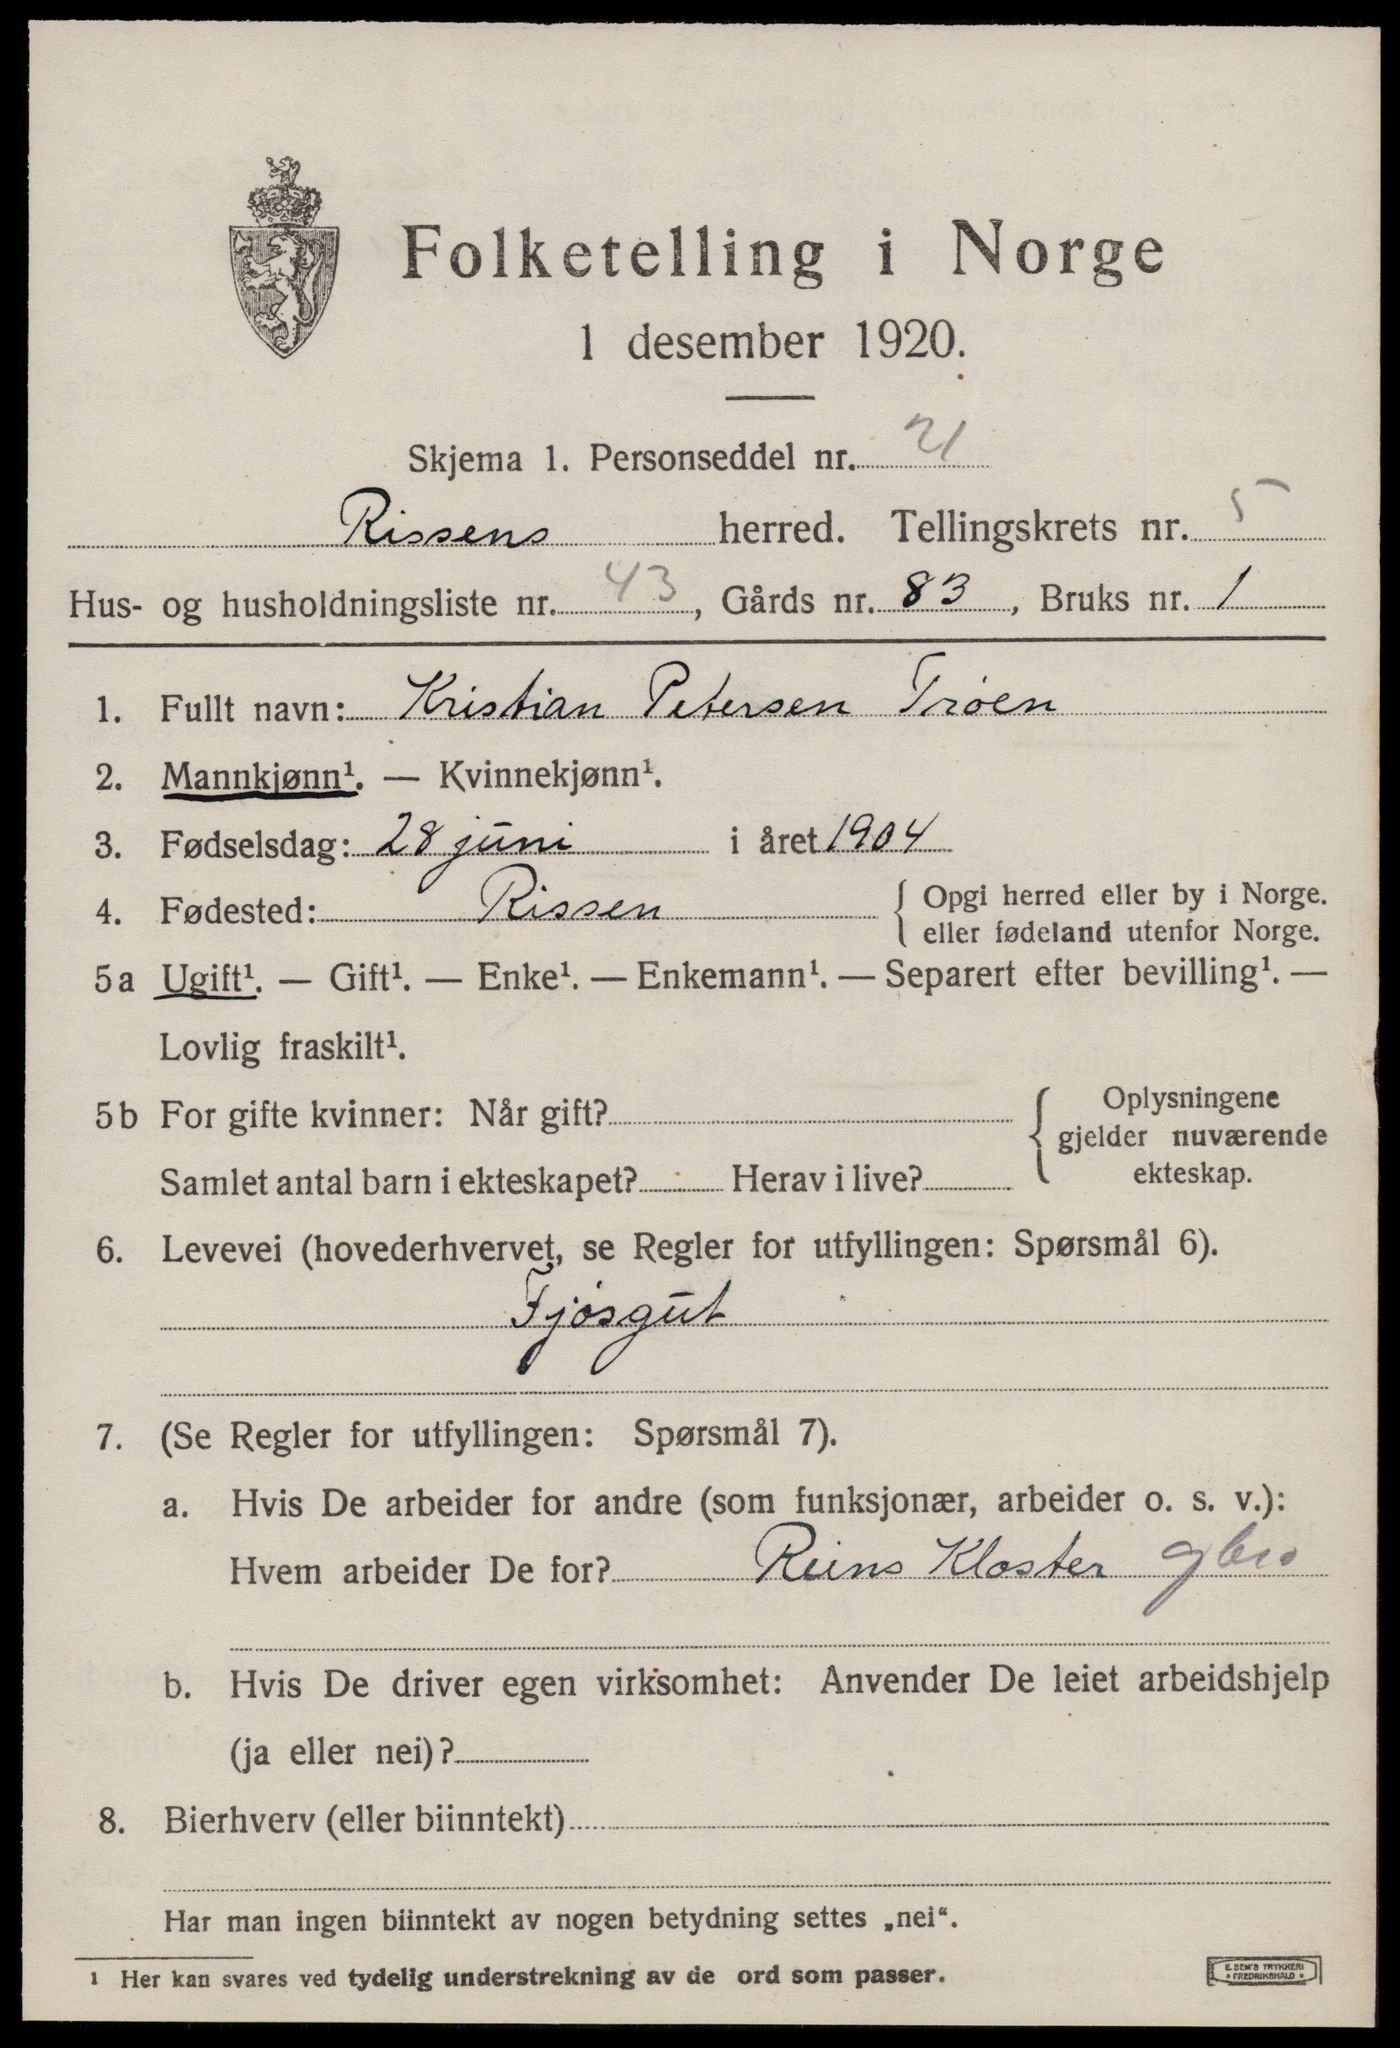 Folketelling i Norge
1 desember 1920.
Skjema 1. Personseddel nr. 21
Rissens herred. Tellingskrets nr. 5
Hus- og husholdningsliste nr. 43, Gårds nr. 83, Bruks nr. 1
1. Fullt navn: Kristian Petersen Trøen
2. Mannkjønn¹. — Kvinnekjønn¹.
3. Fødselsdag: 28 juni i året 1904
4. Fødested: Rissen { Opgi herred eller by i Norge.
eller fødeland utenfor Norge.
5a Ugift¹. — Gift¹. — Enke¹. — Enkemann¹. — Separert efter bevilling¹. —
Lovlig fraskilt¹.
5b For gifte kvinner: Når gift? { Oplysningene
gjelder nuværende
ekteskap.
Samlet antal barn i ekteskapet? Herav i live?
6. Levevei (hovederhvervet, se Regler for utfyllingen: Spørsmål 6).
Fjøsgut
7. (Se Regler for utfyllingen: Spørsmål 7).
a. Hvis De arbeider for andre (som funksjonær, arbeider o. s. v.):
Hvem arbeider De for? Reins Kloster
b. Hvis De driver egen virksomhet: Anvender De leiet arbeidshjelp
(ja eller nei)?
8. Bierhverv (eller biinntekt)
Har man ingen biinntekt av nogen betydning settes „nei“.
¹ Her kan svares ved tydelig understrekning av de ord som passer.
E. SEM'S TRYKKERI
• FREDRIKSHALD •